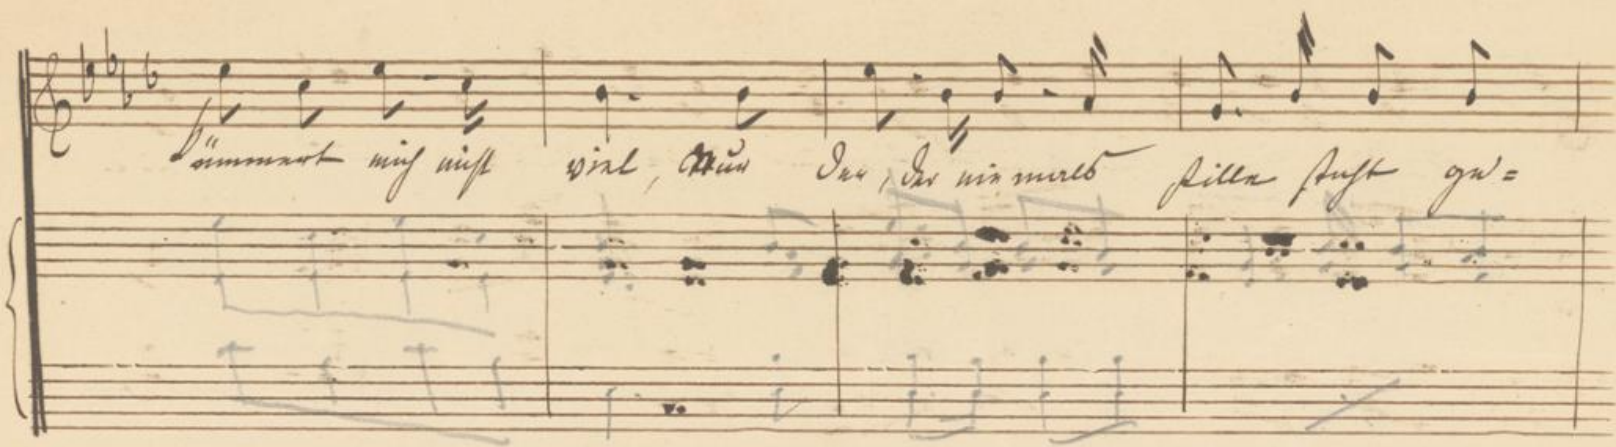 kümmert mich nicht viel, Nur der, der niemals stille steht ge=